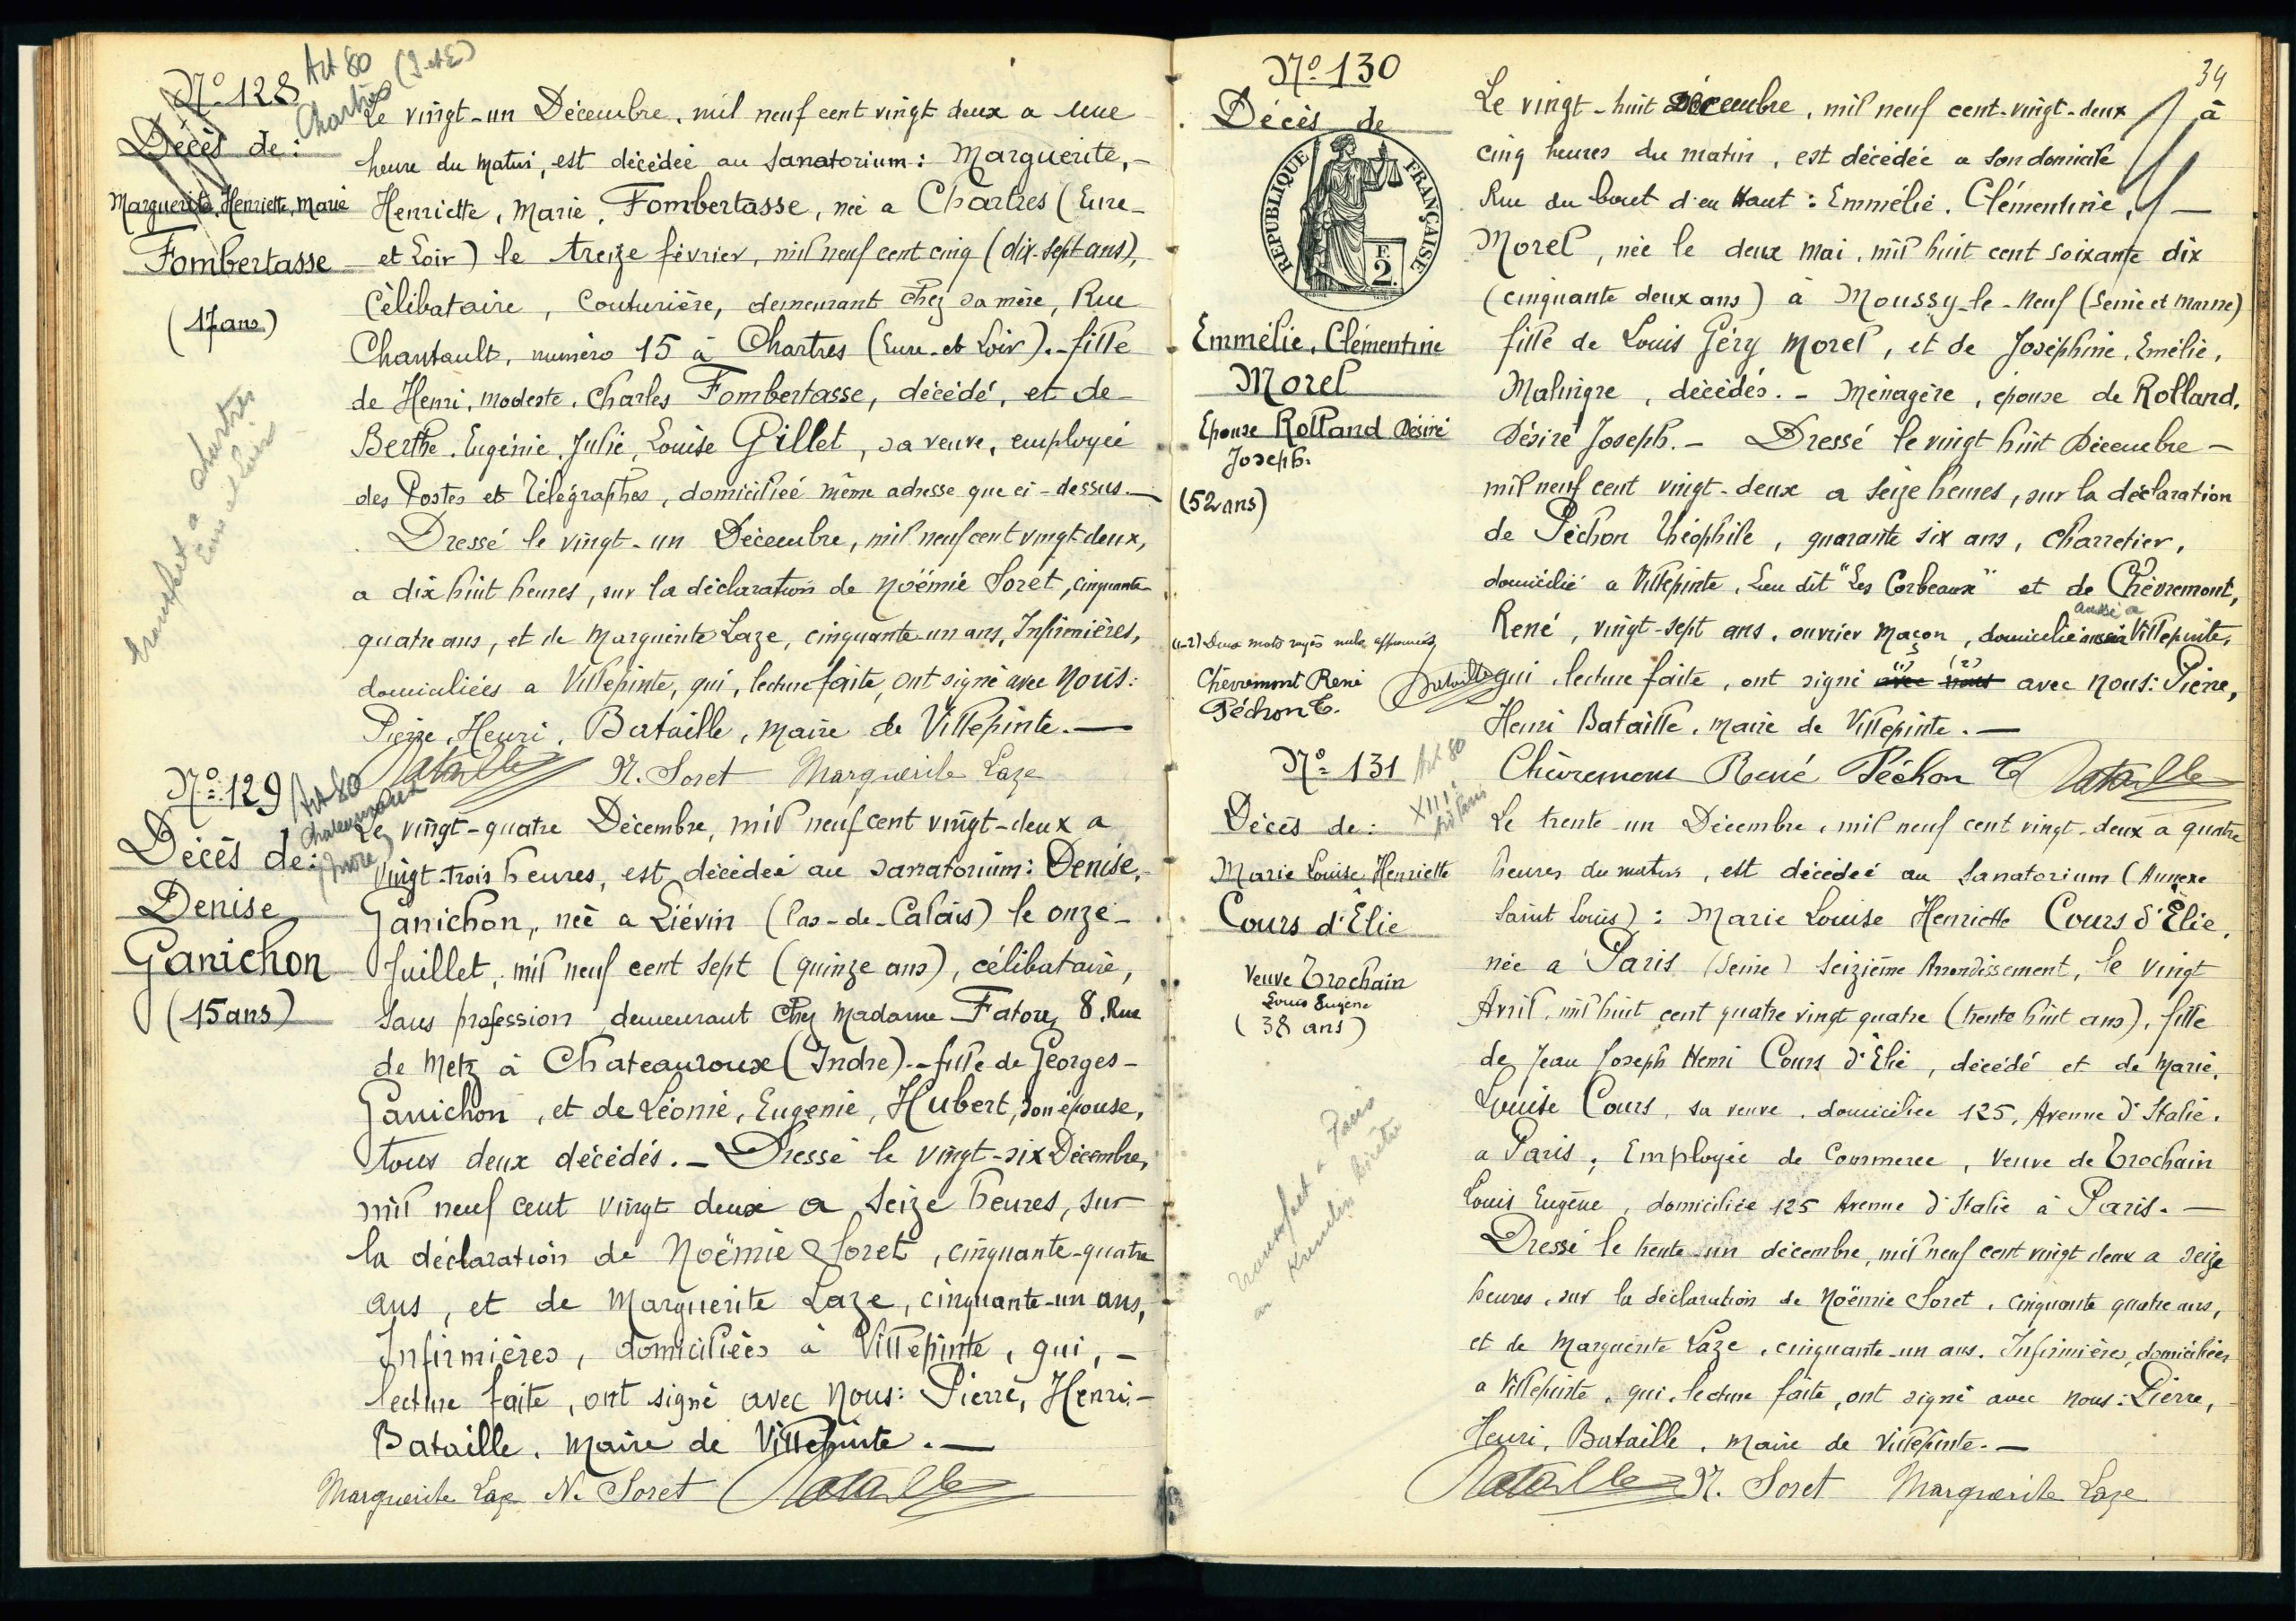 Nº 128
Art 80
Chartres (E-et-L)
Décès de :
Marguerite, Henriette, Marie
Fombertasse
(17 ans)
transcrit à Chartres
Eure et Loir
Le vingt-un Décembre, mil neuf cent vingt deux a une
heure du matin, est décédée au Sanatorium : Marguerite, -
Henriette, Marie, Fombertasse, née a Chartres (Eure-
et Loir) le treize février, mil neuf cent cinq (dix-sept ans),
Célibataire, Couturière, demeurant chez sa mère, Rue
Chantault, numéro 15 à Chartres (Eure-et Loir). - fille
de Henri, Modeste, Charles Fombertasse, décédé, et de
Berthe, Eugénie, Julie, Louise Gillet, sa veuve, employée
des Postes et Télégraphes, domiciliée même adresse que ci-dessus. -
Dressé le vingt-un Décembre, mil neuf cent vingt deux,
a dix huit heures, sur la déclaration de Noëmie Soret, cinquante
quatre ans, et de Marguerite Laze, cinquante-un ans, Infirmières,
domiciliées a Villepinte, qui, lecture faite, ont signé avec Nous :
Pierre, Henri, Bataille, Maire de Villepinte. -
Bataille N. Soret Marguerite Laze
Nº 129
Art 80
Chateauroux
(Indre)
Décès de :
Denise
Ganichon
(15 ans)
Le vingt-quatre Décembre, mil neuf cent vingt-deux a
vingt-trois heures, est décédée au sanatorium : Denise, -
Ganichon, née a Liévin (Pas-de-Calais) le onze -
Juillet, mil neuf cent sept (quinze ans), célibataire,
Sans profession demeurant chez Madame Fatoux, 8, Rue
de Metz à Chateauroux (Indre). - fille de Georges -
Ganichon, et de Léonie, Eugénie, Hubert, son épouse,
tous deux décédés. - Dressé le vingt-six Décembre,
mil neuf cent vingt deux a seize heures, sur
la déclaration de Noëmie Soret, cinquante-quatre
ans, et de Marguerite Laze, cinquante-un ans,
Infirmières, domiciliées à Villepinte, qui, -
lecture faite, ont signé avec Nous : Pierre, Henri -
Bataille, Maire de Villepinte. -
Marguerite Laze N. Soret Bataille
34
Nº 130
Décès de
RÉPUBLIQUE FRANÇAISE
F.
2.
Emmélie, Clémentine
Morel
Epouse Rolland Désiré
Joseph.
(52 ans)
(1-2) Deux mots rayés nuls approuvés
Chèvremont René Bataille
Péchon T.
Le vingt-huit Décembre, mil neuf cent-vingt-deux à
cinq heures du matin, est décédée a son domicile
Rue du bout d'en Haut : Emmélie, Clémentine, -
Morel, née le deux Mai, mil huit cent soixante dix
(cinquante deux ans) à Moussy-le-Neuf (Seine et Marne)
fille de Louis Géry Morel, et de Joséphine, Emélie,
Malingre, décédés. - Ménagère, épouse de Rolland,
Désiré Joseph. - Dressé le vingt huit Décembre -
mil neuf cent vingt-deux a seize heures, sur la déclaration
de Péchon Théophile, quarante six ans, charretier,
domicilié a Villepinte, Lieu dit "Les Corbeaux" et de Chèvremont,
René, vingt-sept ans, ouvrier maçon, domicilié aussi a Villepinte,
qui, lecture faite, ont signé avec (1) nous (2) avec Nous : Pierre,
Henri Bataille, Maire de Villepinte. -
Chèvremont René Péchon T. Bataille
Nº 131
Art 80
XIIIe
Arrt Paris
Décès de :
Marie Louise Henriette
Cours d'Élie
Veuve Trochain
Louis Eugène
(38 ans)
transcrit à Paris
au Kremlin Bicêtre
Le trente un Décembre, mil neuf cent vingt-deux a quatre
heures du matin, est décédée au Sanatorium (Annexe
Saint Louis) : Marie Louise Henriette Cours d'Élie,
née a Paris (Seine) Seizième Arrondissement, le vingt
Avril, mil huit cent quatre vingt quatre (trente huit ans), fille
de Jean Joseph Henri Cours d'Élie, décédé et de Marie,
Louise Cours, sa veuve, domiciliée 125, Avenue d'Italie,
a Paris ; Employée de Commerce, Veuve de Trochain
Louis Eugène, domiciliée 125 Avenue d'Italie à Paris. -
Dressé le trente-un décembre, mil neuf cent vingt deux a seize
heures, sur la déclaration de Noëmie Soret, cinquante quatre ans,
et de Marguerite Laze, cinquante-un ans, Infirmières, domiciliées
a Villepinte, qui, lecture faite, ont signé avec Nous : Pierre,
Henri, Bataille, Maire de Villepinte. -
Bataille N. Soret Marguerite Laze